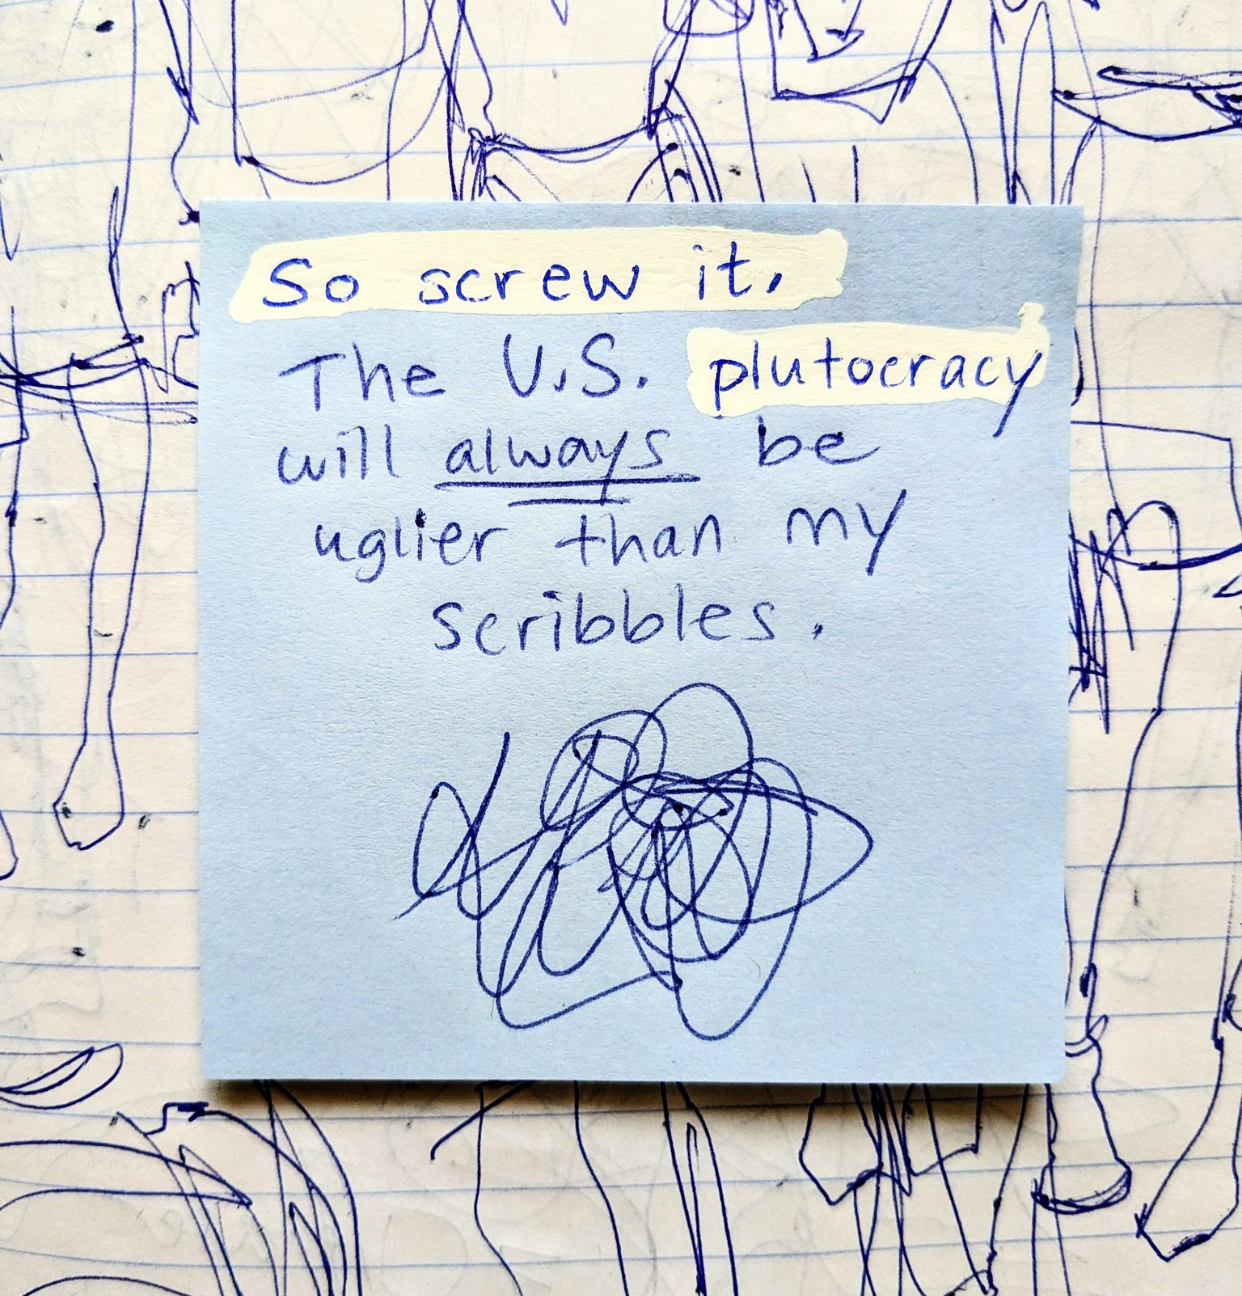 So screw it.
The U.S. plutocracy
will always be
uglier than my
scribbles.